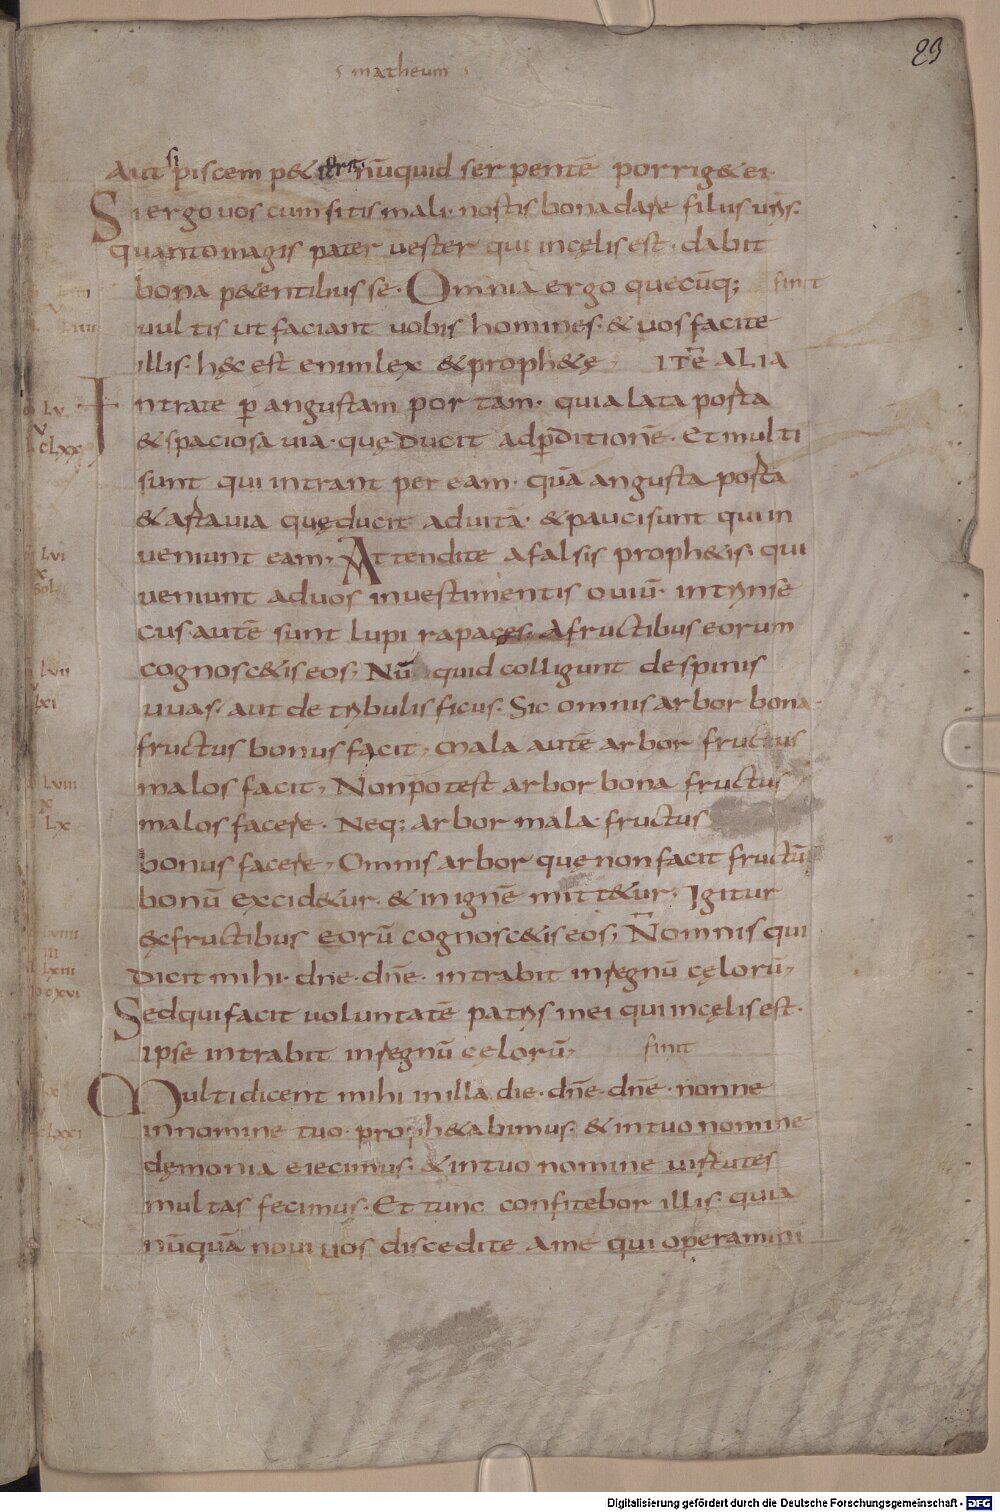 matheum
29
Aut si piscem p&ierit nūquid serpentē porrig&ei·
Si ergo uos cum sitis mali· nostis bona dare filiis uris·
quanto magis pater uester qui in cęlis est· dabit
bona p&entibus se· Omnia ergo quecūq; finit
uultis ut faciant uobis homines· & uos facite
illis· hęc est enim lex & proph&ę· ITĒ ALIA
Intrate p angustam portam· quia lata porta
& spaciosa uia· quę ducit ad pditionē· Et multi
sunt qui intrant per eam· quā angusta porta
& arta uia quę ducit ad uitā· & pauci sunt qui in
ueniunt eam· Attendite a falsis proph&is· qui
ueniunt ad uos in uestimentis ouiū· intrinse
cus autē sunt lupi rapaces· A fructibus eorum
cognosc&is eos, Nū quid colligunt de spinis
uuas· aut de tribulis ficus· Sic omnis arbor bona
fructus bonus facit, mala autē arbor fructus
malos facit, Non potest arbor bona fructus
malos facere· Neq; arbor mala fructus
bonus facere, Omnis arbor quę non facit fructū
bonū excid&ur· & in ignē mitt&ur· Igitur
& fructibus eorū cognosc&is eos, N̄ omnis qui
dicit mihi· dn̄e· dn̄e· intrabit in regnū cęlorū,
Sed qui facit uoluntatē patris mei qui in cęlis est·
ipse intrabit in regnū celorū, finit
Multi dicent mihi in illa die· dn̄e· dn̄e· nonne
in nomine tuo proph&abimus· & in tuo nomine
dęmonia eiecimus· & in tuo nomine uirtutes
multas fecimus· Et tunc confitebor illis· quia
nūquā noui uos discedite a me qui operamini
LV
V
CLXX
LVI
X
Sol
LVII
V
LXI
LVIII
X
LX
LXIII
LXXI
Digitalisierung gefördert durch die Deutsche Forschungsgemeinschaft - DFG